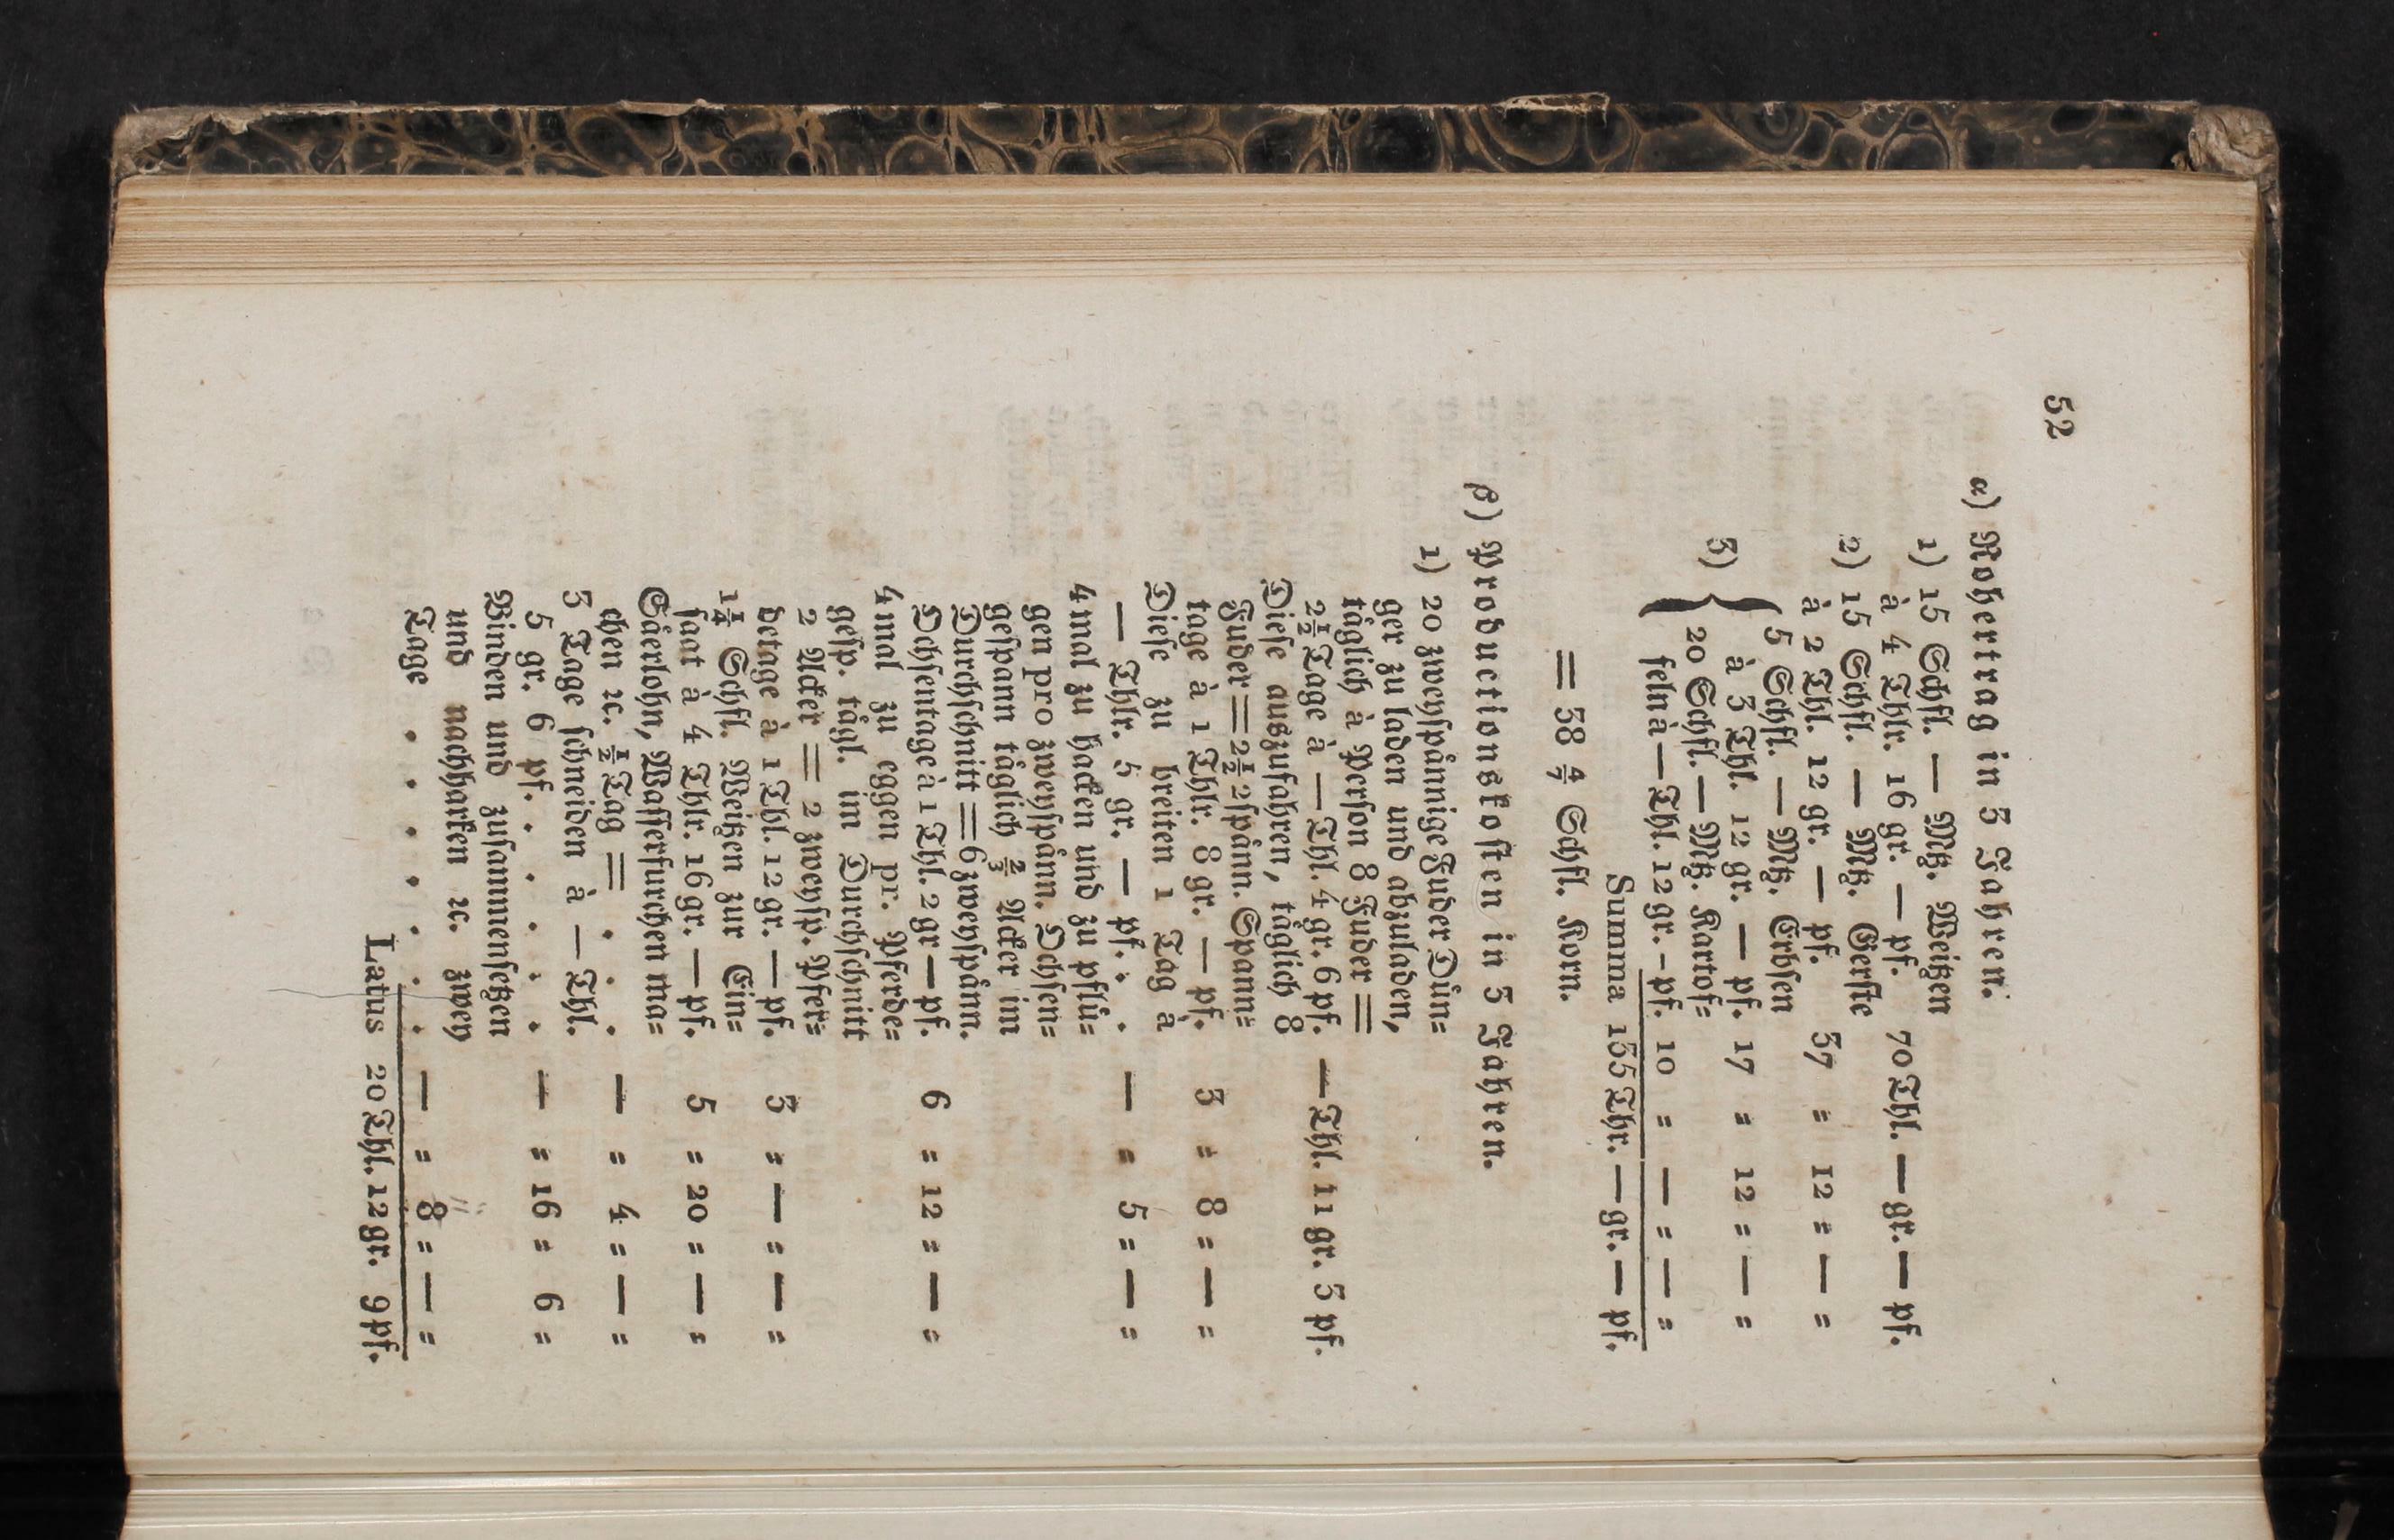 52
α) Rohertrag in 3 Jahren.
1) 15 Schfl. — Mtz. Weitzen
à 4 Thlr. 16 gr. — pf. 70 Thl. — gr. — pf.
2) 15 Schfl. — Mtz. Gerste
à 2 Thl. 12 gr. — pf. 37 = 12 = — =
3) { 5 Schfl. — Mtz. Erbsen
à 3 Thl. 12 gr. — pf. 17 = 12 = — =
20 Schfl. — Mtz. Kartof=
feln à — Thl. 12 gr. – pf. 10 = — = — =
Summa 135 Thr. — gr. — pf.
= 38 4/7 Schfl. Korn.
β) Productionskosten in 3 Jahren.
1) 20 zweyspånnige Fuder Dün=
ger zu laden und abzuladen,
tåglich à Person 8 Fuder =
2½ Tage à — Thl. 4 gr. 6 pf. — Thl. 11 gr. 3 pf.
Diese auszufahren, tåglich 8
Fuder = 2½ 2spånn. Spann=
tage à 1 Thlr. 8 gr. — pf. 3 = 8 = — =
Diese zu breiten 1 Tag a
— Thlr. 5 gr. — pf. . . — = 5 = — =
4mal zu hacken und zu pflü=
gen pro zweyspånn. Ochsen=
gespann tåglich ⅔ Acker im
Durchschnitt = 6 zweyspånn.
Ochsentage à 1 Thl. 2 gr — pf. 6 = 12 = — =
4 mal zu eggen pr. Pferde=
gesp. tågl. im Durchschnitt
2 Acker = 2 zweysp. Pfer=
detage à 1 Thl. 12 gr. — pf. 3 = — = — =
1¼ Schfl. Weitzen zur Ein=
saat à 4 Thlr. 16 gr. — pf. 5 = 20 = — =
Såerlohn, Wasserfurchen ma=
chen ꝛc. ½ Tag = . . . — = 4 = — =
3 Tage schneiden à — Thl.
5 gr. 6 pf. . . . . . — = 16 = 6 =
Binden und zusammensetzen
und nachharken ꝛc. zwey
Tage . . . . . . . — = 8 = — =
Latus 20 Thl. 12 gr. 9 pf.